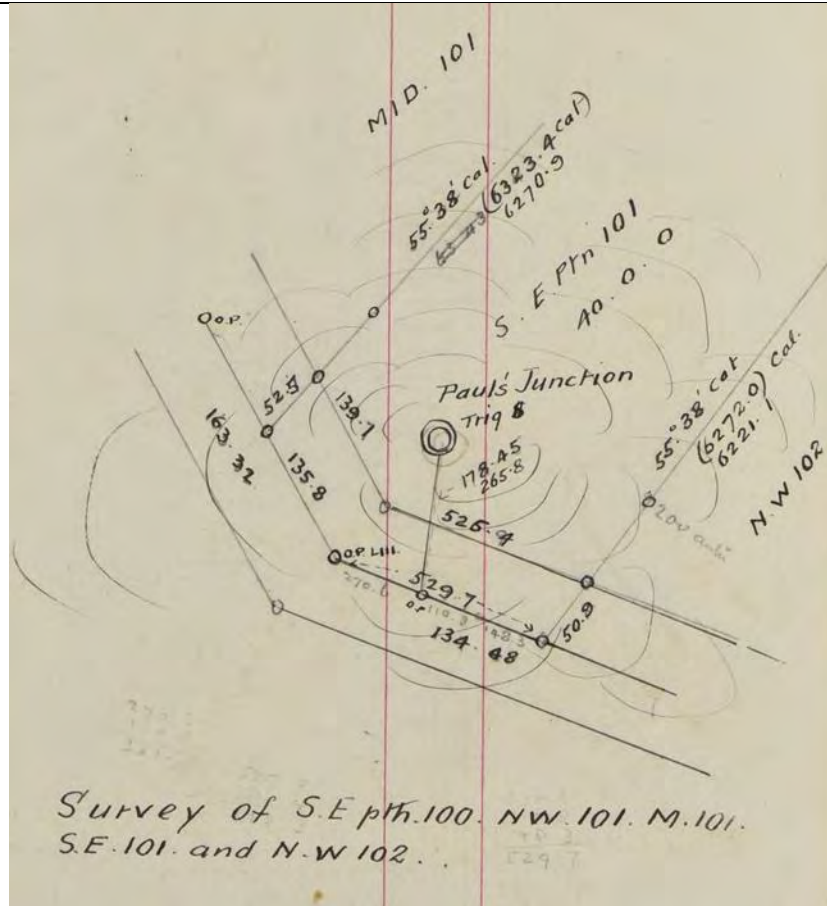 MID. 101
55°.38' Cal.
(6323.4 Cal)
6270.9
S. E. Ptn 101
40. 0. 0
O.P.
52.5
139.7
163.32
135.8
Paul's Junction
Trig
178.45
265.8
55°.38' Cal
(6272.0) Cal.
6221.1
N.W 102
O.P. LIII.
529.7
O.P
50.9
134.48
Survey of S.E pth.100. NW.101. M.101.
S.E.101. and N.W 102.
529.7